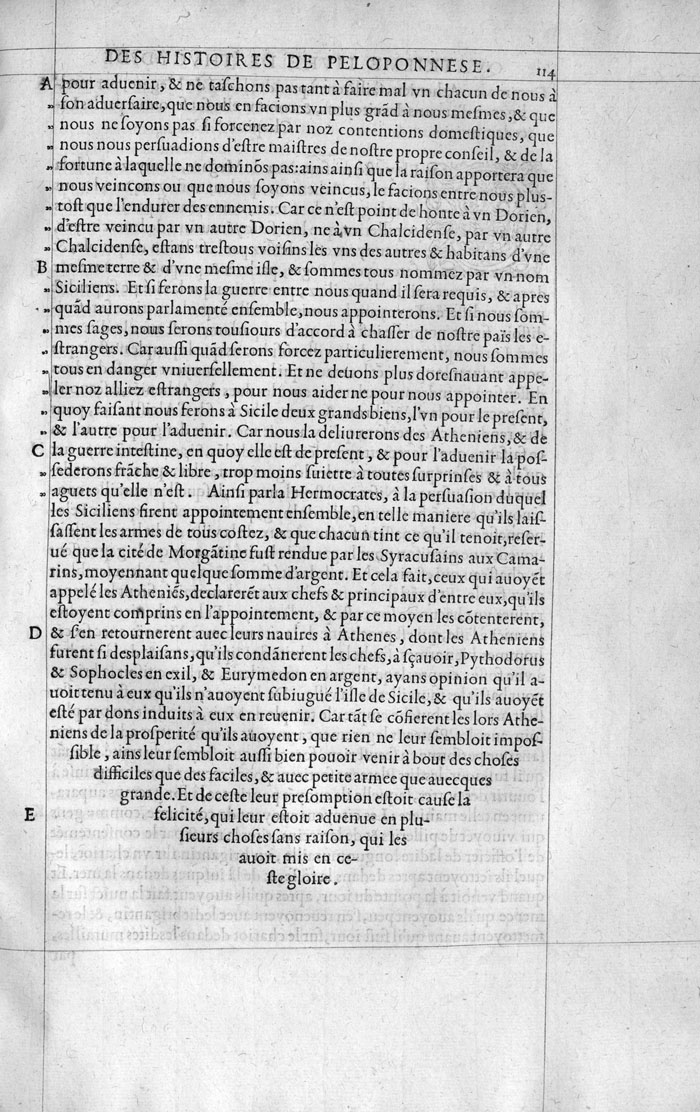 DES HISTOIRES DE PELOPONNESE. 114
A pour aduenir, & ne taſchons pas tant à faire mal vn chacun de nous à
„ ſon aduerſaire, que nous en facions vn plus grãd à nous meſmes, & que
„ nous ne ſoyons pas ſi forcenez par noz contentions domeſtiques, que
„ nous nous perſuadions d'eſtre maiſtres de noſtre propre conſeil, & de la
„ fortune à laquelle ne dominõs pas: ains ainſi que la raiſon apportera que
„ nous veincons ou que nous ſoyons veincus, le facions entre nous plus-
„ toſt que l'endurer des ennemis. Car ce n'eſt point de honte à vn Dorien,
„ d'eſtre veincu par vn autre Dorien, ne à vn Chalcidenſe, par vn autre
„ Chalcidenſe, eſtans treſtous voiſins les vns des autres & habitans d'vne
B meſme terre & d'vne meſme iſle, & ſommes tous nommez par vn nom
„ Siciliens. Et ſi ferons la guerre entre nous quand il ſera requis, & apres
„ quãd aurons parlamenté enſemble, nous appointerons. Et ſi nous ſom-
„ mes ſages, nous ſerons touſiours d'accord à chaſſer de noſtre païs les e-
„ ſtrangers. Car auſſi quãd ſerons forcez particulierement, nous ſommes
„ tous en danger vniuerſellement. Et ne deuons plus doreſnauant appe-
„ ler noz alliez eſtrangers, pour nous aider ne pour nous appointer. En
„ quoy faiſant nous ferons à Sicile deux grands biens, l'vn pour le preſent,
„ & l'autre pour l'aduenir. Car nous la deliurerons des Atheniens, & de
C la guerre inteſtine, en quoy elle eſt de preſent, & pour l'aduenir la poſ-
„ ſederons frãche & libre, trop moins ſuiette à toutes ſurprinſes & à tous
„ aguets qu'elle n'eſt. Ainſi parla Hermocrates, à la perſuaſion duquel
les Siciliens firent appointement enſemble, en telle maniere qu'ils laiſ-
ſaſſent les armes de tous coſtez, & que chacun tint ce qu'il tenoit, reſer-
ué que la cité de Morgãtine fuſt rendue par les Syracuſains aux Cama-
rins, moyennant quelque ſomme d'argent. Et cela fait, ceux qui auoyẽt
appelé les Atheniẽs, declarerẽt aux chefs & principaux d'entre eux, qu'ils
eſtoyent comprins en l'appointement, & par ce moyen les cõtenterent,
D & ſ'en retournerent auec leurs nauires à Athenes, dont les Atheniens
furent ſi deſplaiſans, qu'ils condãnerent les chefs, à ſçauoir, Pythodorus
& Sophocles en exil, & Eurymedon en argent, ayans opinion qu'il a-
uoit tenu à eux qu'ils n'auoyent ſubiugué l'iſle de Sicile, & qu'ils auoyẽt
eſté par dons induits à eux en reuenir. Car tãt ſe cõfierent les lors Athe-
niens de la proſperité qu'ils auoyent, que rien ne leur ſembloit impoſ-
ſible, ains leur ſembloit auſſi bien pouoir venir à bout des choſes
difficiles que des faciles, & auec petite armee que auecques
grande. Et de ceſte leur preſomption eſtoit cauſe la
E felicité, qui leur eſtoit aduenue en plu-
ſieurs choſes ſans raiſon, qui les
auoit mis en ce-
ſte gloire.